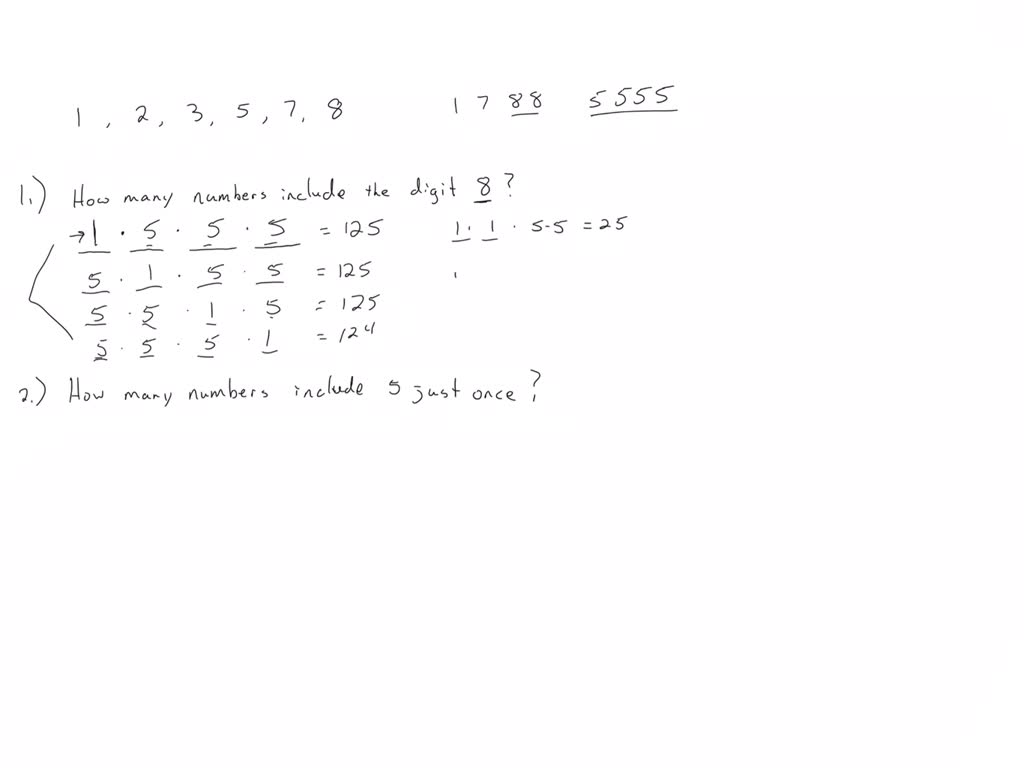 1, 2, 3, 5, 7, 8 1 7 88 5555
1.) How many numbers include the digit 8?
→ 1 · 5 · 5 · 5 = 125 1 · 1 · 5·5 = 25
5 · 1 · 5 · 5 = 125 1
5 · 5 · 1 · 5 = 125
5 · 5 · 5 · 1 = 124
2.) How many numbers include 5 just once?